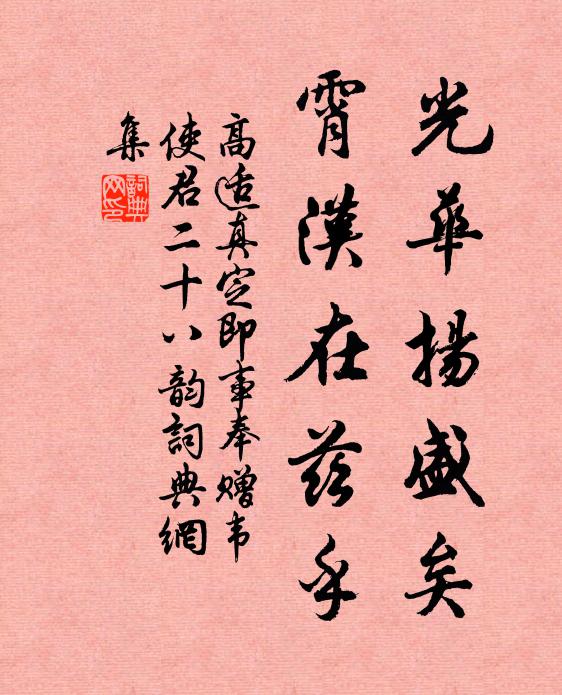 光華揚盛矣
霄漢在茲乎
高适真定即事奉赠韦
使君二十八韵詞典網
集
詞典
网印